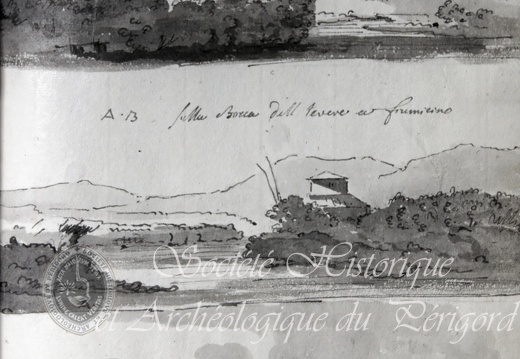 A.B Sulla Bocca dell Tevere a fiumicino
Société Historique
et Archéologique du Périgord